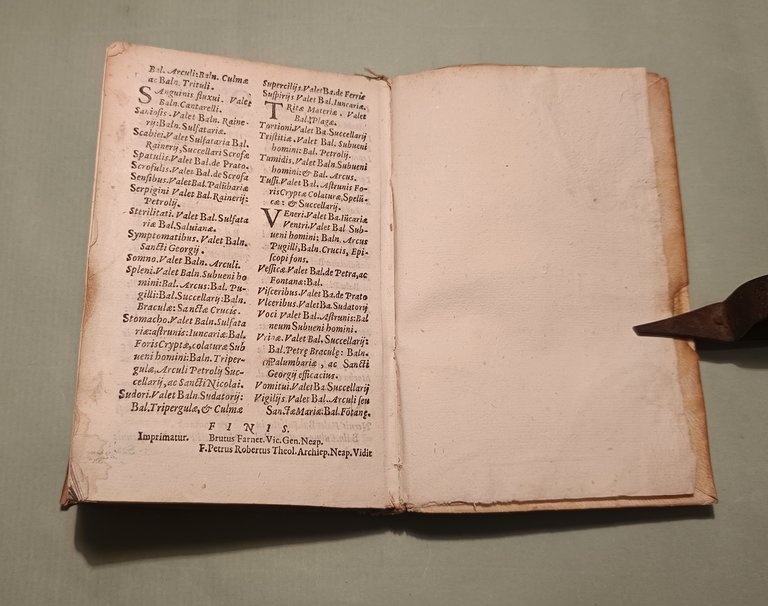 Bal. Arculi: Baln. Culmæ
ac Baln. Trituli.
Sanguinis fluxui. Valet
Baln. Cantarelli.
Saniosis. Valet Baln. Raine-
rij: Baln. Sulfatariæ.
Scabiei. Valet Sulfataria Bal.
Rainerij, Succellari Scrofæ
Spatulis. Valet Bal. de Prato.
Scrofulis. Valet Bal. de Scrofa
Sensibus. Valet Bal. Palūbariæ
Serpigini Valet Bal. Rainerij:
Petrolij.
Sterilitati. Valet Bal. Sulfata
riæ Bal. Saluianæ.
Symptomatibus. Valet Baln.
Sancti Georgij.
Somno. Valet Baln. Arculi.
Spleni. Valet Baln. Subueni ho
mini: Bal. Arcus: Bal. Pu-
gilli: Bal. Succellarij: Baln.
Braculæ: Sanctæ Crucis.
Stomacho. Valet Baln. Sulfata
riæ: astrunis: Iuncariæ: Bal.
Foris Cryptæ, colaturæ Sub
ueni homini: Baln. Triper-
gulæ, Arculi Petrolij Suc-
cellarij, ac Sancti Nicolai.
Sudori. Valet Baln. Sudatorij:
Bal. Tripergulæ, & Culmæ
Supercilijs. Valet Ba. de Ferriæ
Suspirijs Valet Bal. Iuncariæ.
Tritæ Materiæ. Valet
Bal. Plagæ.
Tortioni. Valet Ba. Succellarij
Tristitiæ. Valet Bal. Subueni
homini: Bal. Petrolij.
Tumidis. Valet Baln. Subueni
homini: & Bal. Arcus.
Tussi. Valet Bal. Astrunis Fo-
ris Cryptæ Colaturæ, Spelū-
cæ: & Succellarij.
Veneri. Valet Ba. Iūcariæ
Ventri. Valet Bal Sub-
ueni homini: Baln. Arcus
Pugilli, Baln. Crucis, Epi-
scopi fons.
Vessicæ. Valet Bal. de Petra, ac
Fontanæ: Bal.
Visceribus. Valet Ba. de Prato
Vlceribus. Valet Ba. Sudatorij
Voci Valet Bal. Astrunis: Bal
neum Subueni homini.
Vrinæ. Valet Bal. Succellarij:
Bal. Petrę Braculę: Baln.
Palumbariæ, ac Sancti
Georgij efficacius.
Vomitui. Valet Ba. Succellarij
Vigilijs. Valet Bal. Arculi seu
Sanctæ Mariæ: Bal. Fōtanę.
FINIS.
Imprimatur. Brutus Farnet. Vic. Gen. Neap.
F. Petrus Robertus Theol. Archiep. Neap. Vidit